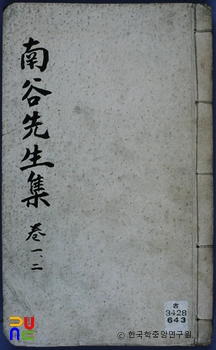 南谷先生集
卷一二
古
3428
643
PUUC
ⓒ 한국학중앙연구원